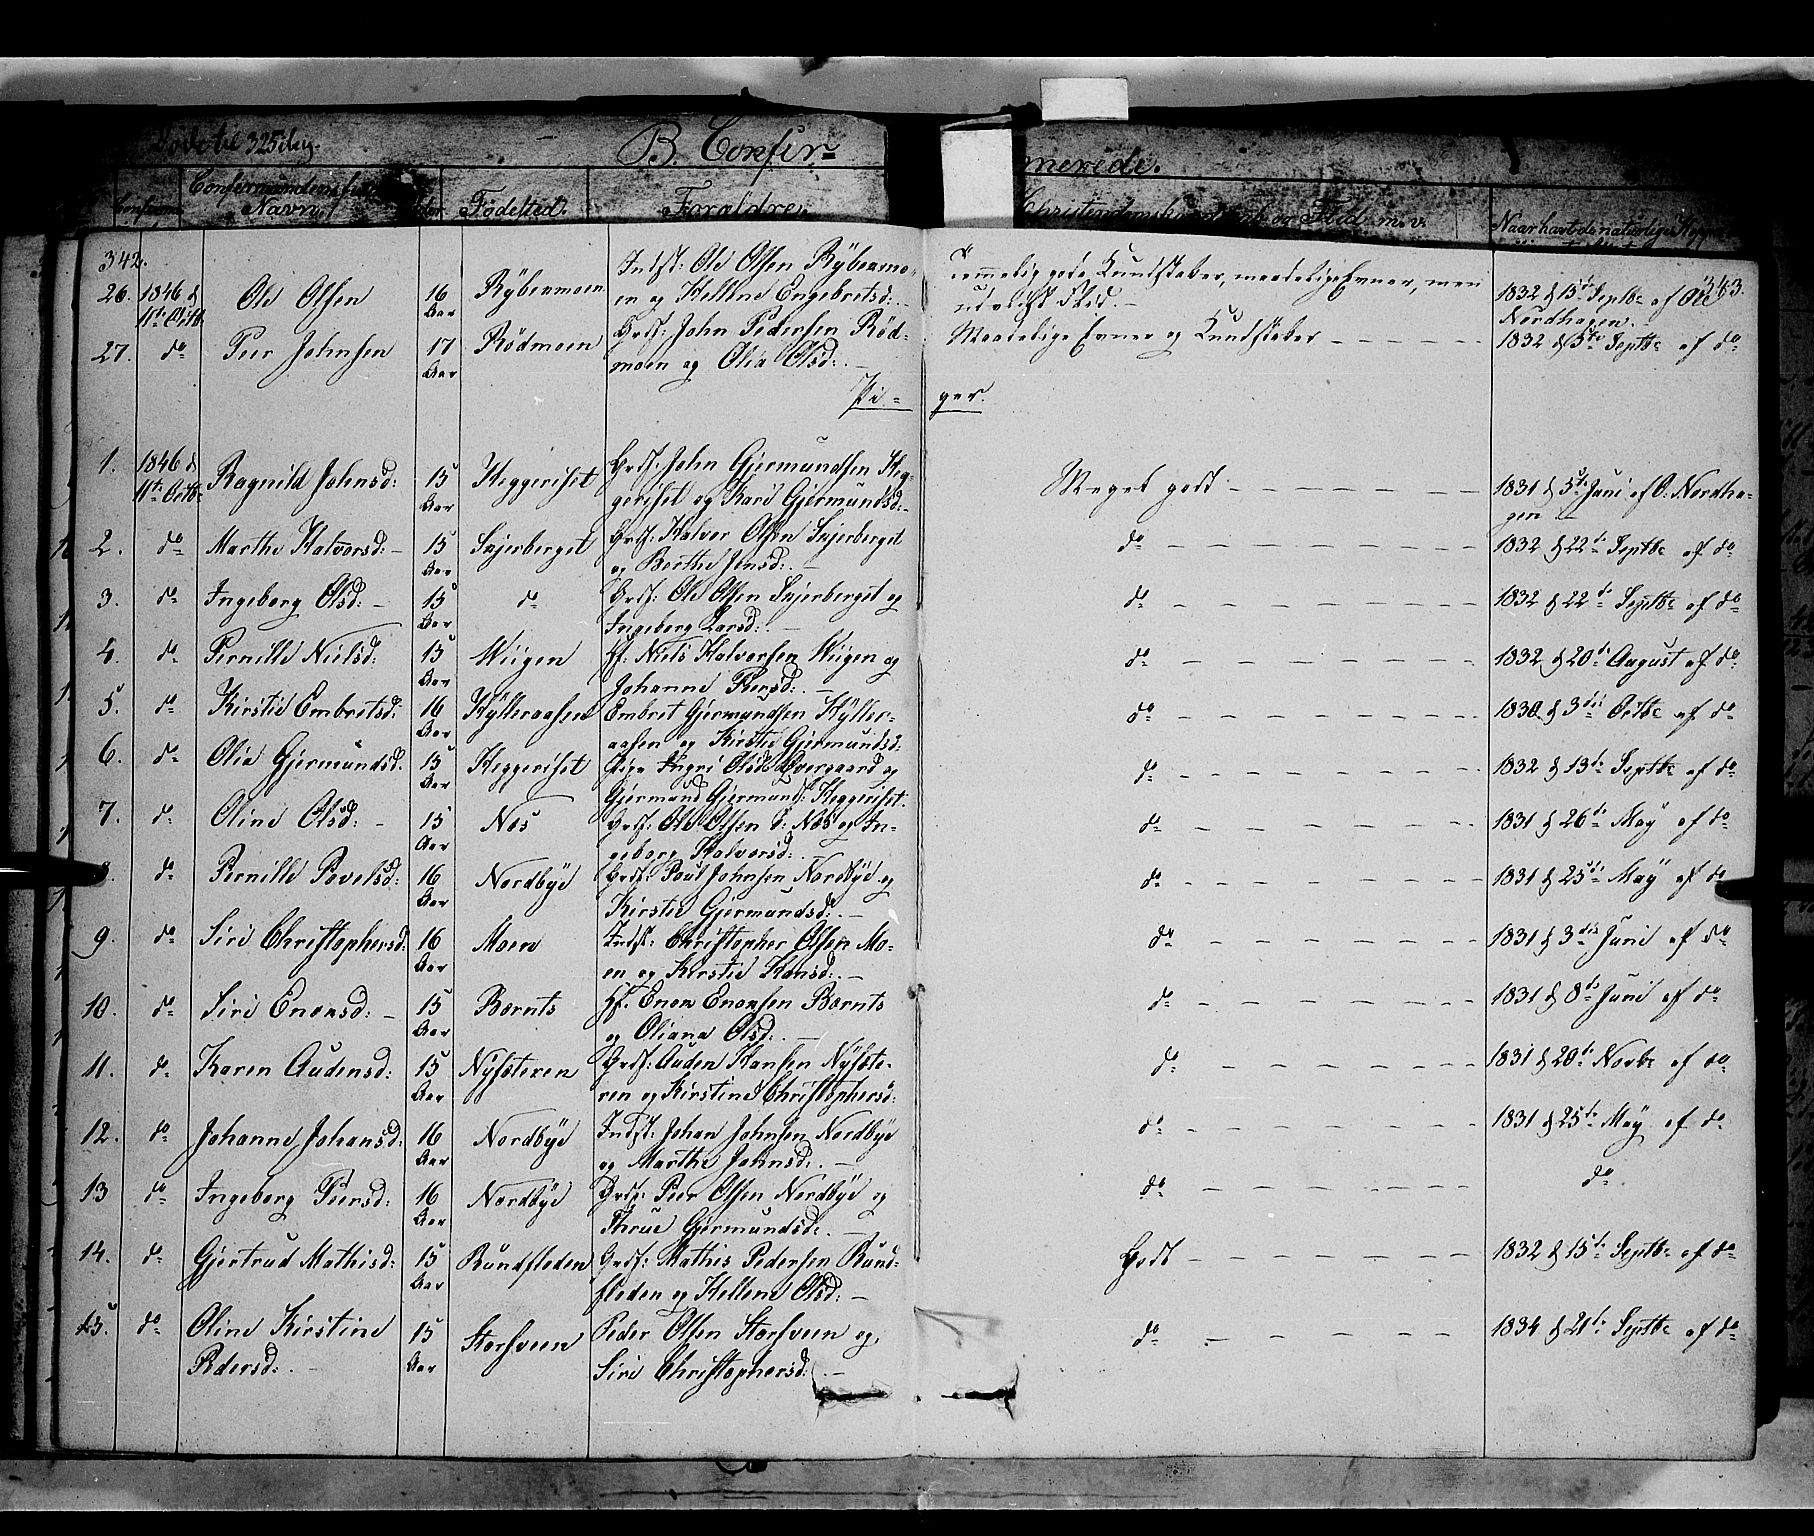 B. Confir= merede.
Navn. Fødested. Forældre.
342. 343.
26. 1846 d 11te Octb. Ole Olsen 16 Aar Rÿbermoen Indst: Ole Olsen Rÿbermo-
en og Hellene Engebretsd: — temmelig gode Kundskaber, maadelige Evner, men
udvalgt Flid. — 1832 d 15de Septbr af Ole Nordhagen. —
27. do Peer Johnsen 17 Aar Rödmoen Grdf: John Pedersen Röd-
moen og Olia Olsd: — Maadelige Evner og Kundskaber 1832 d 5te Septbr af do
Pi= ger.
1. 1846 d 11te Octbr Ragnild Johnsd: 15 Aar Heggeriset Grdf: John Gjermundsen Heg-
geriset og Kari Gjermundsd: Meget godt 1831 d 5te Juni af O. Nordha-
gen —
2. do Marthe Halvorsd: — 15 Aar Skjerberget Grdf: Halvor Olsen Skjerberget
og Berthe Jensd: — do 1832 d 22de Septbr af do
3. do Ingeborg Olsd: — 15 Aar do Grdf: Ole Olsen Skjerberget og
Ingeborg Larsd: — do 1832 d 22de Septbr af do
4. do Pernille Nielsd: 15 Aar Wiigen Hf: Niels Halvorsen Wiigen og
Johanne Peersd: — do 1832 d 20de August af do
5. do Kirstie Embretsd: 16 Aar Hÿlleraasen Embret Gjermundsen Hÿller-
aasen og Kirstie Gjermundsd: do 1830 d 3die Octbr af do
6. do Olia Gjermundsd. 15 Aar Heggeriset Pige Ingri Olsd Overgaard og
Gjermund Gjermunds: Heggeriset. do 1832 d 13de Septbr af do
7. do Oline Olsd: — 15 Aar Næs Grdf: Ole Olsen i Næs og In-
geborg Halvorsd: do 1831 d 26de May af do
8. do Pernille Povelsd: 16 Aar Nordbÿe Grdf: Poul Johnsen Nordbÿe og
Kirstie Gjermundsd: — do 1831 d 25de Maÿ af do
9. do Siri Christophersd: 16 Aar Moen Indst: Christopher Olsen Mo-
en og Kirstie Hansd: — do 1831 d 3die Juni af do
10. do Siri Enensd: — 15 Aar Bernts Hf: Enen Enensen Bernts
og Oliana Olsd: — do 1831 d 8de Juni af do
11. do Karen Audensd: 15 Aar Nÿsteren Grdf: Auden Hansen Nÿste-
ren og Kirstine Christophersd: do 1831 d 20de Novbr af do
12. do Johanne Johansd: 16 Aar Nordbÿe Indst: Johan Johnsen Nordbÿe
og Marthe Johnsd: — do 1831 d 25de Maÿ af do
13 do Ingeborg Peersd: 16 Aar Nordbÿe Grdf: Peer Olsen Nordbÿe og
Thrue Gjermundsd: — do do
14. do Gjertrud Mathisd: 15 Aar Rundfloden Grdf: Mathis Pedersen Rund-
floden og Hellene Olsd: — Godt 1832 d 15de Septbr af do
15. do Oline Kirstine
Pedersd: — 15 Aar Storsveen Peder Olsen Storsveen og
Siri Christophersd: — do 1834 d 21de Septbr af do